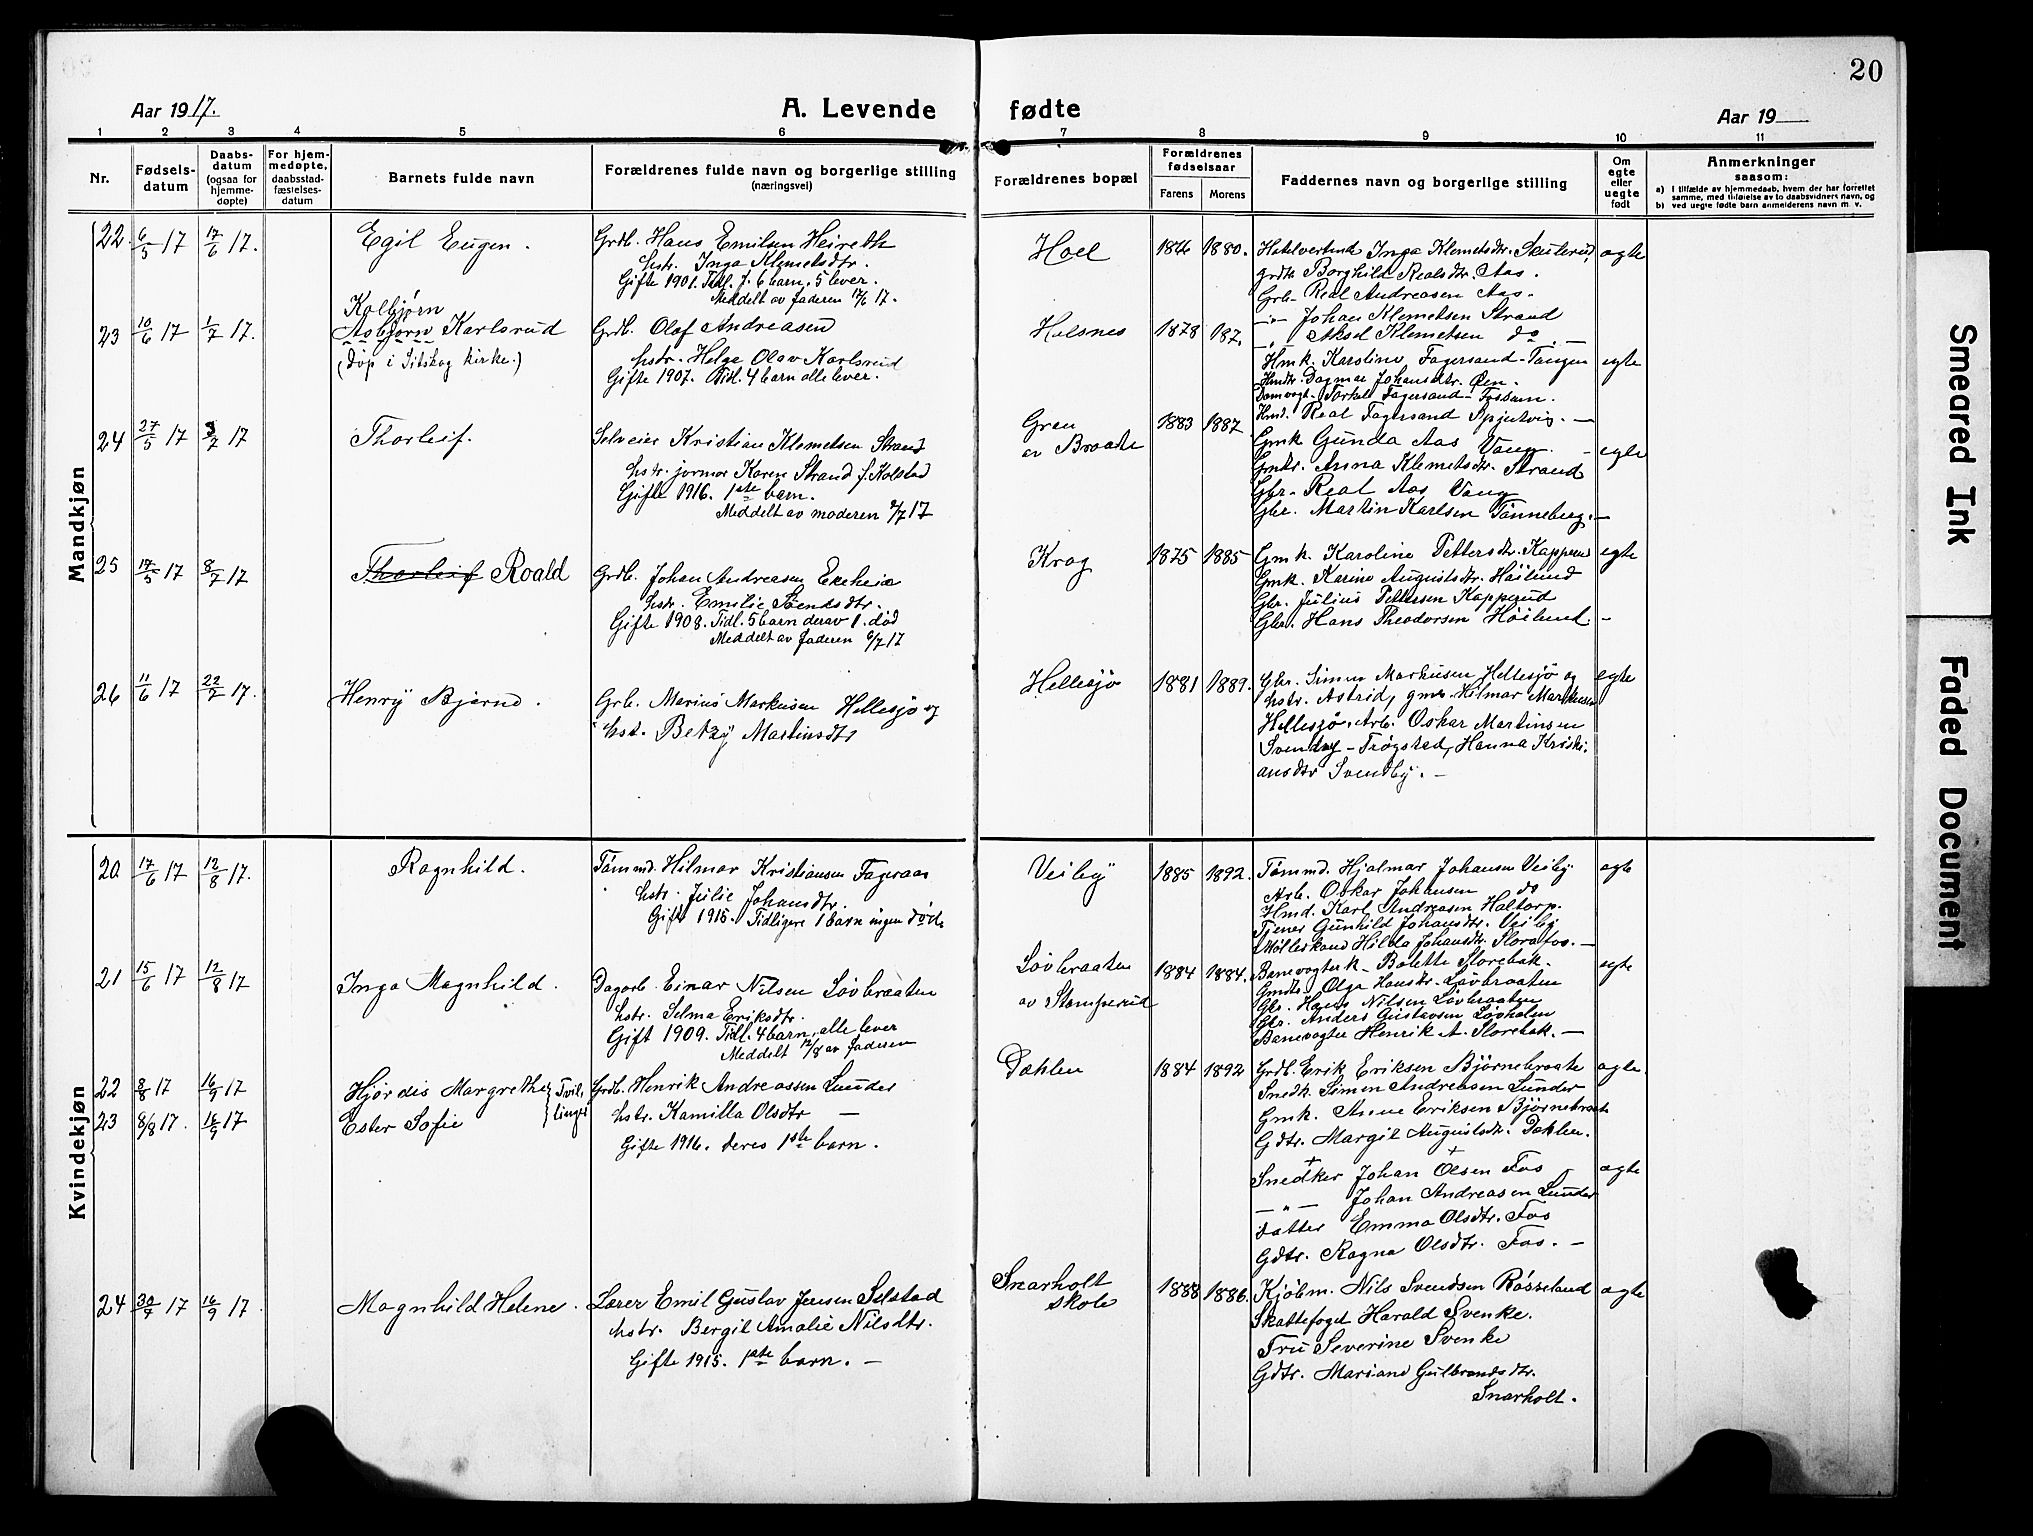 20
Aar 1917.
A. Levende
fødte
Aar 19
1 2 3 4 5 6 7 8 9 10 11
Nr.
Fødsels-
datum
Daabs-
datum
(ogsaa for
hjemme-
døpte)
For hjem-
medøpte,
daabsstad-
fæstelses-
datum
Barnets fulde navn
Forældrenes fulde navn og borgerlige stilling
(næringsvei)
Forældrenes bopæl
Forældrenes
fødselsaar
Farens Morens
Faddernes navn og borgerlige stilling
Om
egte
eller
uegte
født
Anmerkninger
saasom:
a) I tilfælde av hjemmedaab, hvem der har forrettet
samme, med tilføielse av to daabsvidners navn, og
b) ved uegte fødte barn anmelderens navn m. v.
Mandkjøn
22. 6/5 17 17/6 17. Egil Eugen.
Grdb. Hans Emilsen Heireth
hstr. Inga Klemetsdtr.
Gifte 1901. Tidl. f. 6 barn, 5 lever.
Meddelt av faderen 17/6 17.
Hoel 1880.
Inga Klemetsdtr. Skulerud egte
Borghild Realsdtr. Aas.
Grb. Real Andreasen Aas.
-"- Johan Klemetsen Strand
-"- Aksel Klemetsen do. -
23 10/6 17 1/7 17. Kolbjørn
Asbjørn Karlsrud
(Døp i Sitskog kirke.)
Grdb. Olaf Andreasen
hstr. Helga Olav Karlsrud
Gifte 1907. Tidl. 4 barn alle lever.
Holsnes 1878 187.
Hmk. Karoline Fagersand-Tangen egte
Hmdtr. Dagmar Johansdtr. Øen.
Torkel Fagersand-Fossum.
Hmd. Real Fagersand Spjutvig. -
24 27/5 17 17 Thorleif.
Selveier Kristian Klemetsen Strand
hstr. jormor Karen Strand f. Kolstad
Gifte 1916. 1ste barn.
Meddelt av moderen 17
Gren
av Braate 1883 1887
Gmk Gunda Aas Vang. - egte
Gmdtr. Anna Klemetsdtr. Strand
Gbr. Real Aas Vang
Gbr. Martin Karlsen Tønneberg. -
25 17/5 17 8/7 17 Thorleif Roald
Grdb. Johan Andreasen Ekeheia
hstr. Emilie Svendsdtr.
Gifte 1908. Tidl. 5 barn derav 1. død
Meddelt av faderen 6/7 17
Krog 1875 1885
Gmk. Karoline Pettersdtr. Kapperud egte
Gmk. Karine Augustsdtr. Høilund
Gbr. Julius Pettersen Kapperud
Gbr. Hans Theodorsen Høilund. -
26 11/6 17 22/7 17. Henry Bjarne.
Grb. Marius Markusen Hellesjø og
hst. Betzy Martinsdtr
Hellesjø 1881 1889.
Gbr. Simen Markusen Hellesjø og egte
hstr. Astrid, gmk. Hilmar Markusen
Hellesjø. Arb. Oskar Martinsen
Svendby - Trøgstad, Hanna Kristi-
ansdtr Svendby. -
Kvindekjøn
20 17/6 17 12/8 17. Ragnhild.
Tømmd. Hilmar Kristiansen Fageraas
hstr. Julie Johansdtr.
Gift 1915. Tidligere 1 barn ingen døde
Veiby 1885 1892.
Tømmd. Hjalmar Johansen Veiby egte
Arb. Oskar Johansen do
Hmd. Karl Andreasen Haltorp.
Tjener Gunhild Johansdtr. Veiby
Hilda Johansdtr. Florafos. -
21 15/6 17 12/8 17 Inga Magnhild.
Dagarb. Einar Nilsen Løvbraaten
hstr. Selma Eriksdtr.
Gift 1909. Tidl. 4 barn, alle lever
Meddelt 12/8 av faderen
Løvbraaten
av Stomperud 1884 1884.
Banevogterk. Bolette Florebak. egte
Gmdtr. Olga Hansdtr. Løvbraaten
Gbr. Hans Nilsen Løvbraaten
Gbr. Anders Gustavsen Løvholen
Banevogter Henrik A. Florebak. -
22 8/8 17 16/9 17 Hjørdis Margrethe } Tvil-
23 8/8 17. 16/9 17 Ester Sofie } linger
Grdb. Henrik Andreassen Lunder
hstr. Kamilla Olsdtr -
Gifte 1916. deres 1ste barn.
Dahlen 1884 1892
Grdb. Erik Eriksen Bjørnebraate egte
Snedk. Simen Andreasen Lunder
Gmk. Anne Eriksen Bjørnebraate
Gdtr. Margit Augustsdtr. Dahlen.
Snedker Johan Olsen Fos egte
-"- Johan Andreasen Lunder
datter Emma Olsdtr. Fos
Gdtr. Ragna Olsdtr. Fos. -
24 30/7 17 16/9 17 Magnhild Helene.
Lærer Emil Gustav Jensen Selstad
hstr. Bergit Amalie Nilsdtr.
Gifte 1915. 1ste barn. -
Snarholt
skole 1888 1886.
Kjøbm. Nils Svendsen Røsselund egte
Skattefoget Harald Svenke.
Fru Severine Svenke
Gdtr. Mariane Gulbrandsdtr.
Snarholt.
Smeared Ink
Faded Document